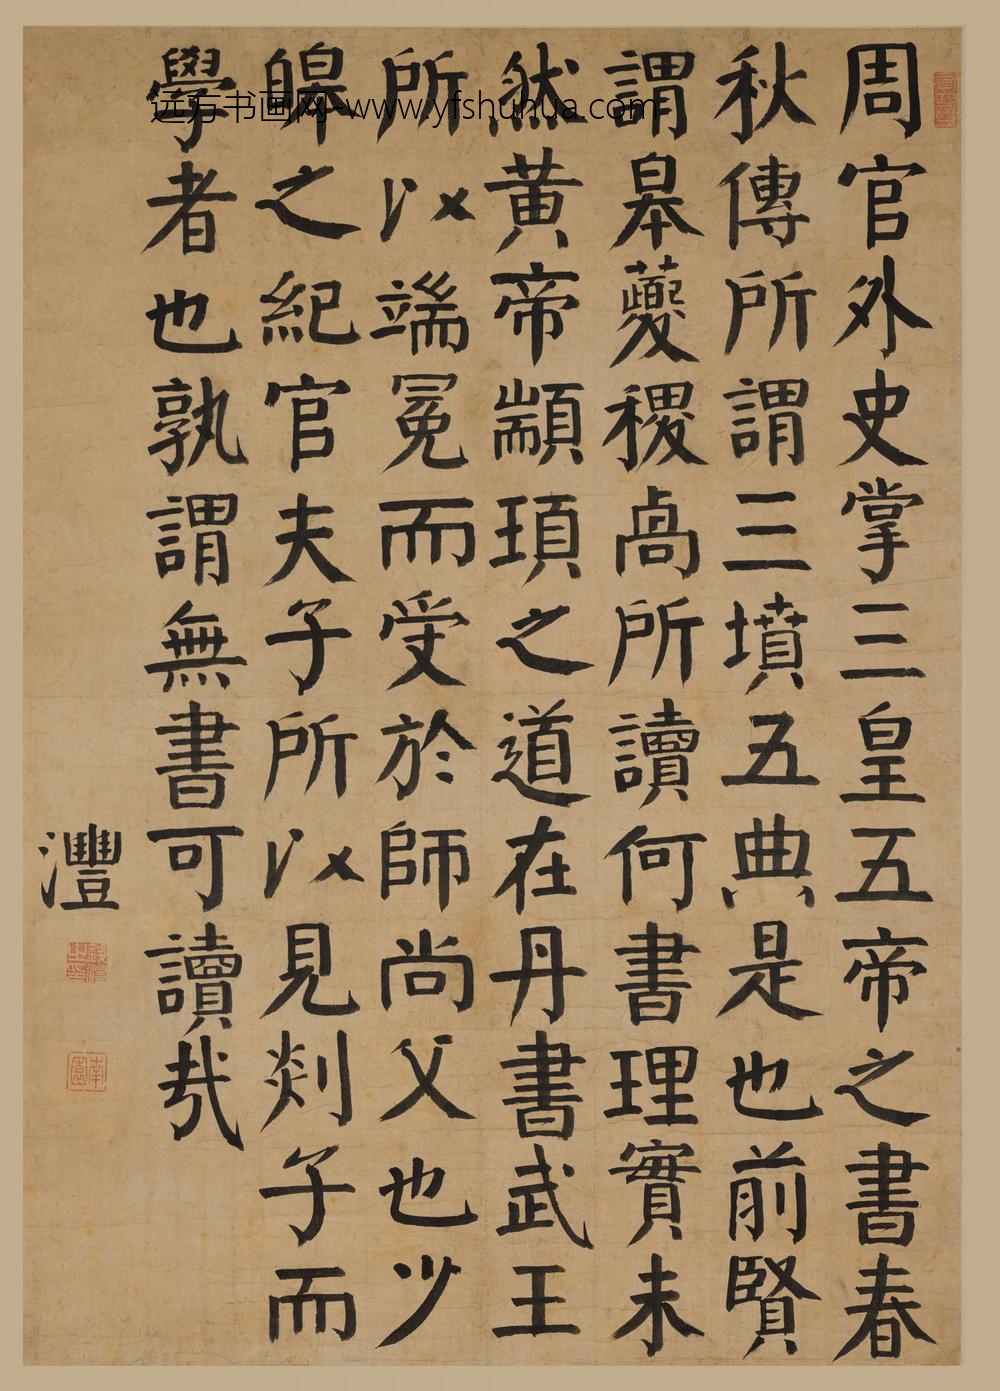 周官外史掌三皇五帝之書春
秋傳所謂三墳五典是也前賢
謂皋夔稷卨所讀何書理實未
然黃帝顓頊之道在丹書武王
所以端冕而受於師尚父也少
皞之紀官夫子所以見郯子而
學者也孰謂無書可讀哉
灃
南園
远方书画网-www.yfshuhua.com